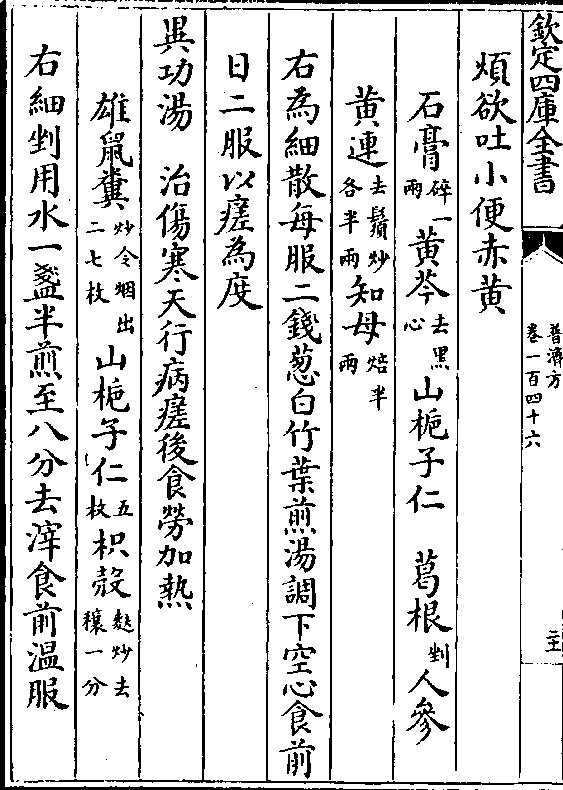 欽定四庫全書
普濟方
卷一百四十六
煩欲吐小便赤黃
石膏碎一兩黃芩去黑心山梔子仁 葛根剉人參
黃連去鬚炒各半兩知母焙半兩
右為細散每服二錢葱白竹葉煎湯調下空心食前
日二服以瘥為度
異功湯 治傷寒天行病瘥後食勞加熱
雄鼠糞炒令烟出二七枚山梔子仁五枚枳殼麩炒去穰一分
右細剉用水一盞半煎至八分去滓食前温服